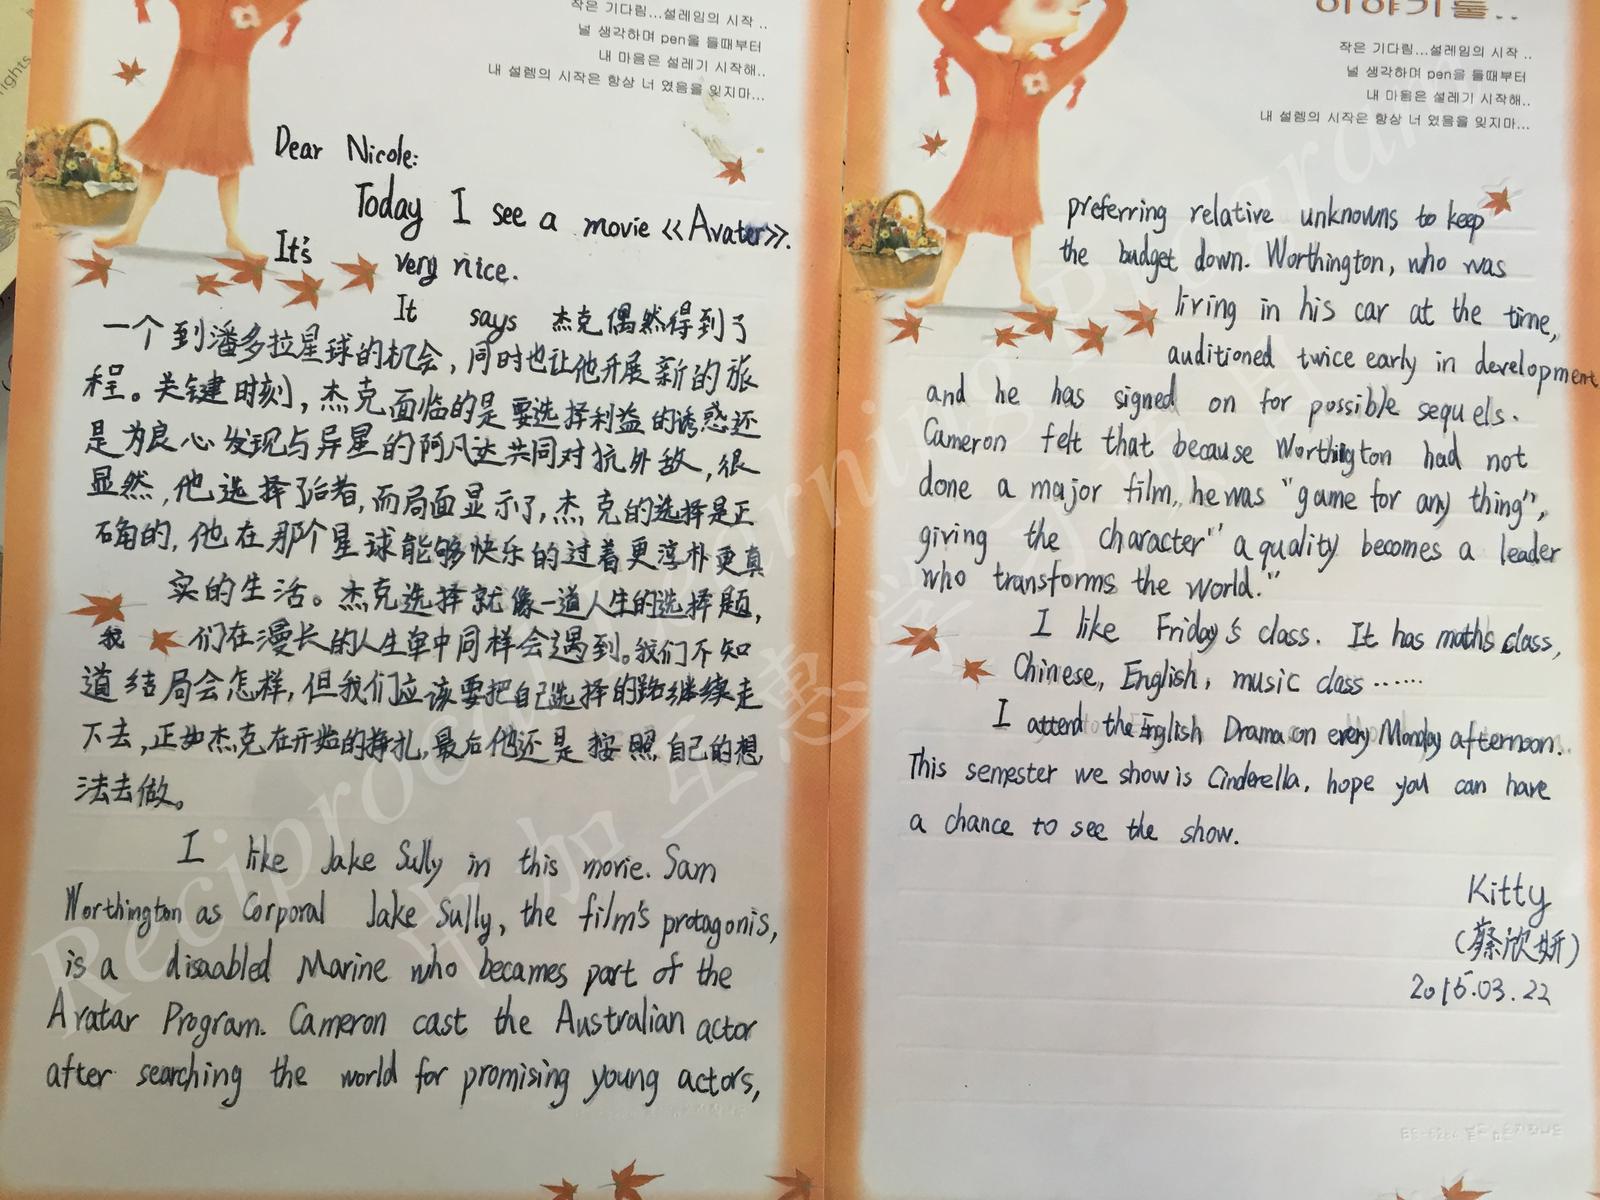 작은 기다림...설레임의 시작 ..
널 생각하며 pen을 들때부터
내 마음은 설레기 시작해..
내 설렘의 시작은 항상 너 였음을 잊지마...
Dear Nicole:
Today I see a movie 《Avater》.
It's very nice.
It says 杰克偶然得到了
一个到潘多拉星球的机会，同时也让他开展新的旅
程。关键时刻，杰克面临的是要选择利益的诱惑还
是为良心发现与异星的阿凡达共同对抗外敌，很
显然，他选择了后者，而局面显示了，杰克的选择是正
确的，他在那个星球能够快乐的过着更淳朴更真
实的生活。杰克选择就像一道人生的选择题，
我们在漫长的人生单中同样会遇到。我们不知
道结局会怎样，但我们应该要把自己选择的路继续走
下去，正如杰克在开始的挣扎，最后他还是按照自己的想
法去做。
I like Jake Sully in this movie. Sam
Worthington as Corporal Jake Sully, the film's protagonis,
is a disaabled Marine who becames part of the
Avatar Program. Cameron cast the Australian actor
after searching the world for promising young actors,
이야기들..
작은 기다림...설레임의 시작 ..
널 생각하며 pen을 들때부터
내 마음은 설레기 시작해..
내 설렘의 시작은 항상 너 였음을 잊지마...
preferring relative unknowns to keep
the budget down. Worthington, who was
living in his car at the time,
auditioned twice early in development
and he has signed on for possible sequels.
Cameron felt that because Worthington had not
done a major film, he was "game for any thing",
giving the character" a quality becomes a leader
who transforms the world."
I like Friday's class. It has maths class,
Chinese, English, music class ......
I attend the English Drama on every Monday afternoon.
This semester we show is Cinderella, hope you can have
a chance to see the show.
Kitty
(蔡欣妍)
2015.03.22
Reciprocal Learning Program
中加互惠学习项目